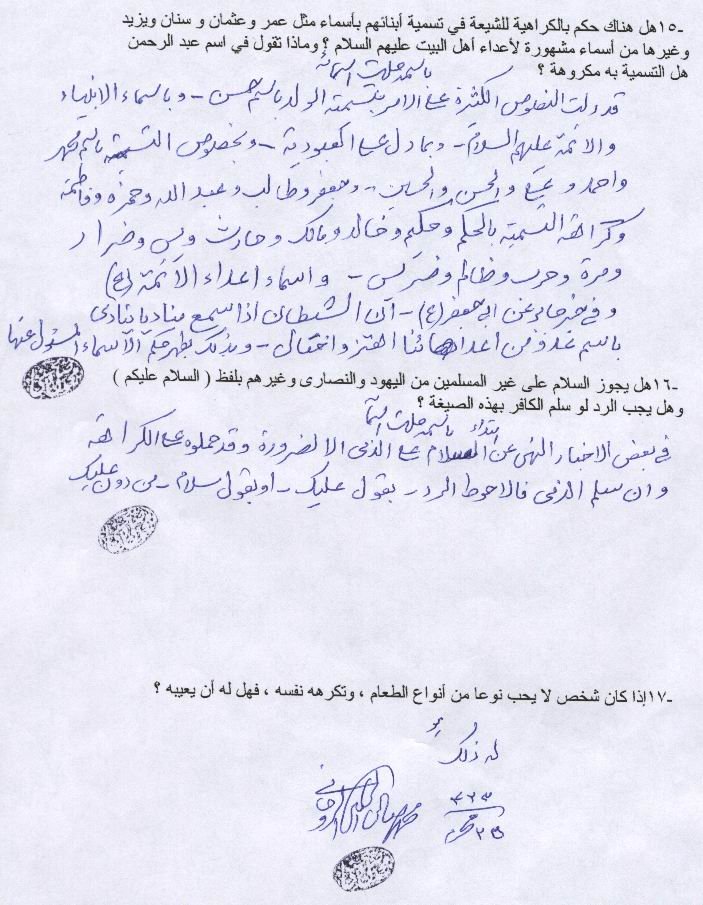 ١٥ـ هل هناك حكم بالكراهية للشيعة في تسمية أبنائهم بأسماء مثل عمر وعثمان و سنان ويزيد
وغيرها من أسماء مشهورة لأعداء أهل البيت عليهم السلام ؟ وماذا تقول في اسم عبد الرحمن
هل التسمية به مكروهة ؟
باسمه جلت اسمائه
قد دلت النصوص الكثيرة على الامر بتسمية الولد باسم حسن - وباسماء الانبياء
والائمة عليهم السلام - وبما دل على العبودية - وبخصوص التسمية باسم محمد
واحمد وعلي والحسن والحسين - وجعفر وطالب وعبد الله وحمزة وفاطمة
وكراهة التسمية بالحكم وحكيم وخالد ومالك وحارث ويس وضرار
ومرة وحرب وظالم وضريس - واسماء اعداء الائمة (ع)
وفي خبر جابر عن ابي جعفر (ع) - ان الشيطان اذا سمع مناديا ينادي
باسم عدو من اعدائنا اهتز واختال - وبذلك يظهر حكم الاسماء المسئول عنها
١٦ـ هل يجوز السلام على غير المسلمين من اليهود والنصارى وغيرهم بلفظ ( السلام عليكم )
وهل يجب الرد لو سلم الكافر بهذه الصيغة ؟
باسمه جلت اسمائه
في بعض الاخبار النهي عن السلام ابتداء على الذمي الا لضرورة وقد حملوه على الكراهة
وان سلم الذمي فالاحوط الرد - بقول عليك - او بقول سلام - من دون عليك
١٧ـ إذا كان شخص لا يحب نوعا من أنواع الطعام ، وتكرهه نفسه ، فهل له أن يعيبه ؟
له ذلك